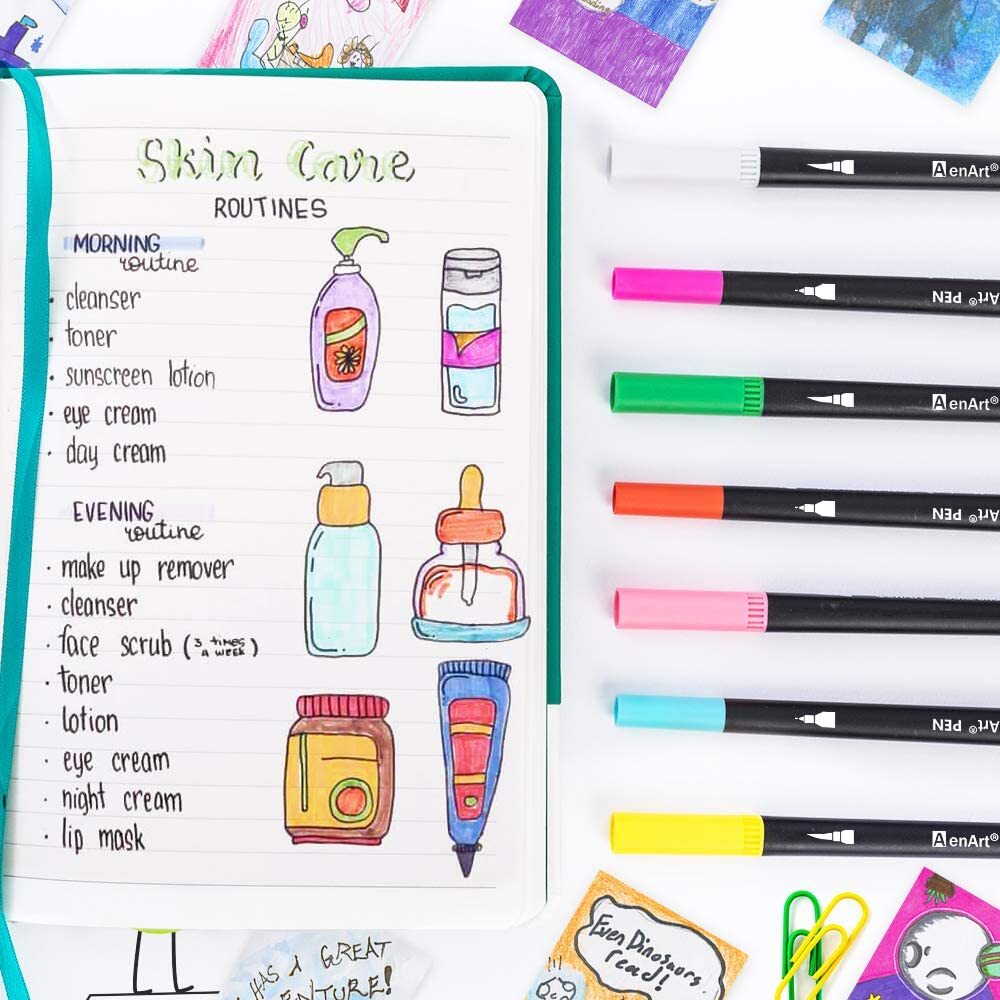 Skin Care
ROUTINES
MORNING
routine
• cleanser
• toner
• sunscreen lotion
• eye cream
• day cream
EVENING
routine
• make up remover
• cleanser
• face scrub (3 times a week)
• toner
• lotion
• eye cream
• night cream
• lip mask
AenArt®
Art® PEN
AenArt®
Art® PEN
Art® PEN
AenArt®
HAS A GREAT
ENTURE!
Even Dinosaurs
read!